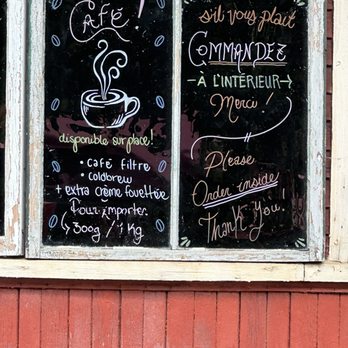 Café!
disponible sur place!
• café filtre
• coldbrew
+ extra crème fouettée
Pour emporter
↳ 300g / 1 Kg
s'il vous plait
COMMANDEZ
- À L'INTÉRIEUR →
Merci!
Please
Order inside
Thank You!